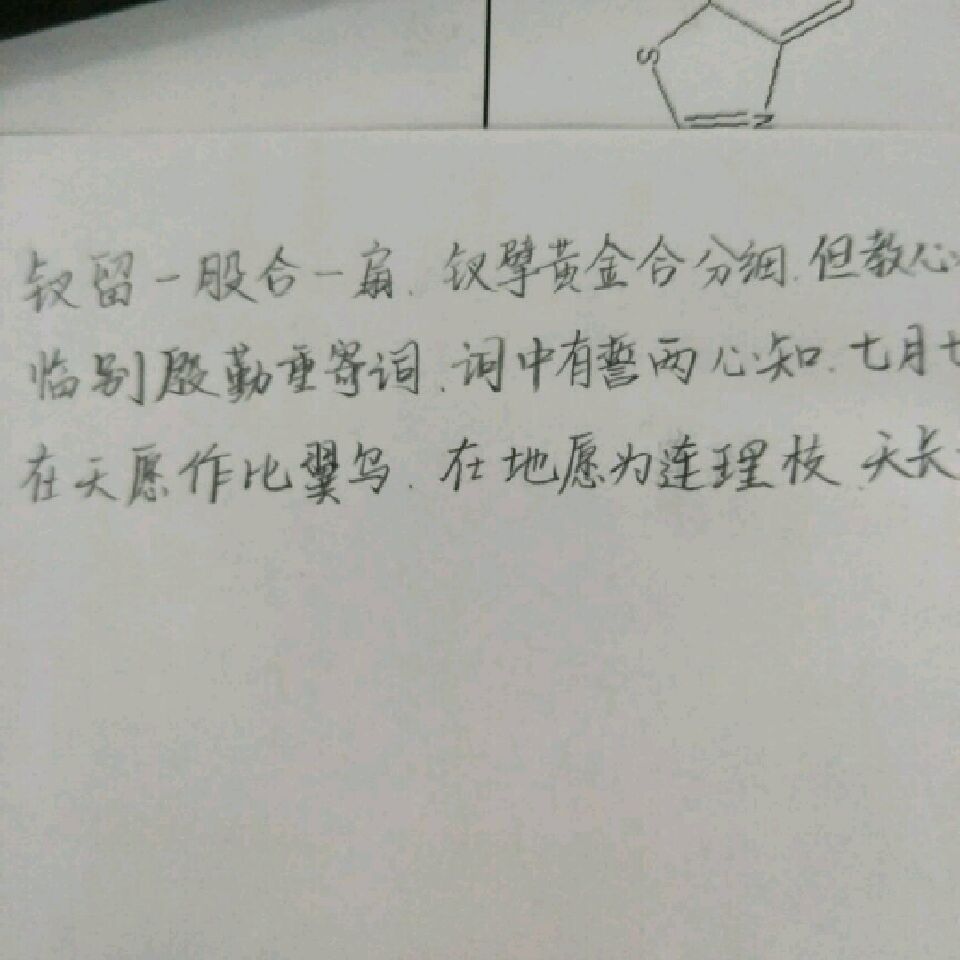 S
N
钗留一股合一扇.钗擘黄金合分细.但教心
临别殷勤重寄词.词中有誓两心知.七月七
在天愿作比翼鸟.在地愿为连理枝.天长